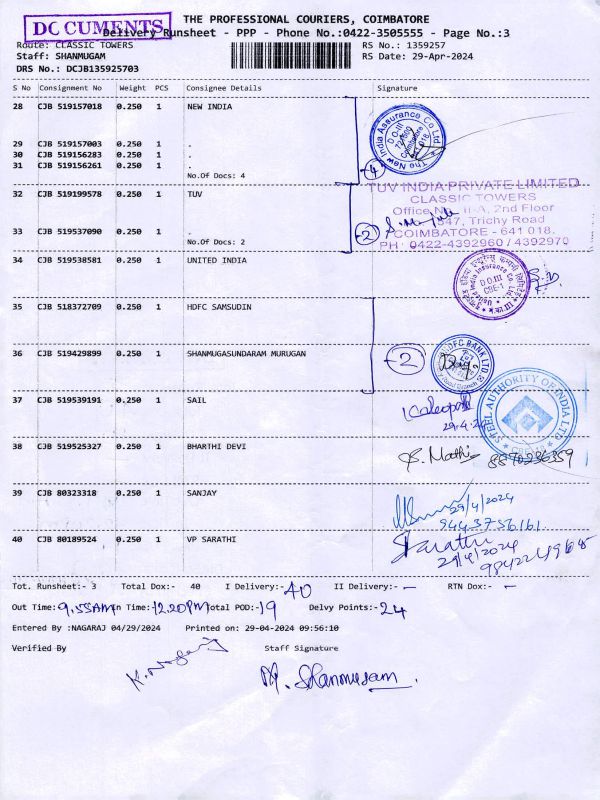 THE PROFESSIONAL COURIERS, COIMBATORE
DC CUMENTS
Delivery Runsheet - PPP - Phone No.:0422-3505555 - Page No.:3
Route: CLASSIC TOWERS RS No.: 1359257
Staff: SHANMUGAM RS Date: 29-Apr-2024
DRS No.: DCJB135925703
S No Consignment No Weight PCS Consignee Details Signature
28 CJB 519157018 0.250 1 NEW INDIA
The New India Assurance Co Ltd
D.O.III
29 CJB 519157003 0.250 1 .
30 CJB 519156283 0.250 1 .
31 CJB 519156261 0.250 1 .
4
No.Of Docs: 4
32 CJB 519199578 0.250 1 TUV
TUV INDIA PRIVATE LIMITED
CLASSIC TOWERS
2nd Floor
Trichy Road
33 CJB 519537090 0.250 1 .
2
COIMBATORE - 641 018.
No.Of Docs: 2
PH: 0422-4392960 / 4392970
34 CJB 519538581 0.250 1 UNITED INDIA
D.O.III
CBE-1
35 CJB 518372709 0.250 1 HDFC SAMSUDIN
36 CJB 519429899 0.250 1 SHANMUGASUNDARAM MURUGAN
2
HDFC BANK LTD
37 CJB 519539191 0.250 1 SAIL
29.4.24
STEEL AUTHORITY OF INDIA LTD
38 CJB 519525327 0.250 1 BHARTHI DEVI
S. Mathi 8870236359
39 CJB 80323318 0.250 1 SANJAY
29/4/2024
9443756161
40 CJB 80189524 0.250 1 VP SARATHI
Sarathi
29/4/2024
Tot. Runsheet:- 3 Total Dox:- 40 I Delivery:- 40 II Delivery:- — RTN Dox:- —
Out Time: 9.55AM In Time: 12.20PM Total POD:- 19 Delvy Points:- 24
Entered By :NAGARAJ 04/29/2024 Printed on: 29-04-2024 09:56:10
Verified By Staff Signature
K. Nagaraj
M. Shanmugam.